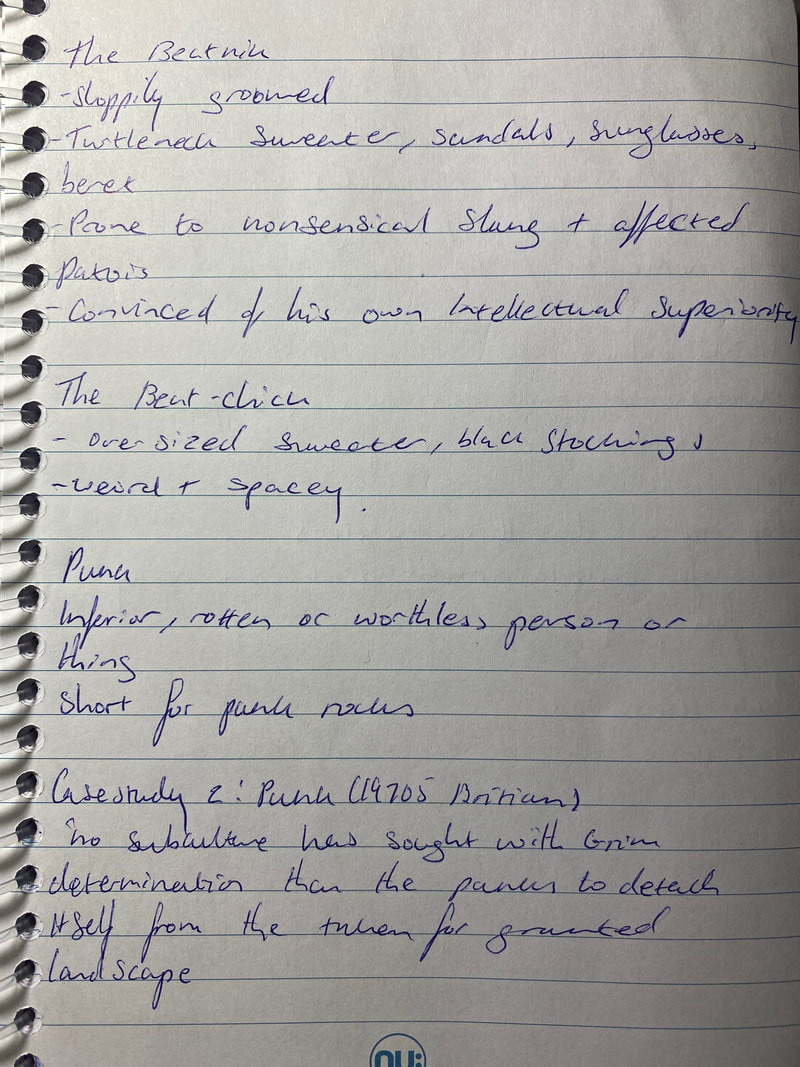 The Beatnik
- Sloppily groomed
- Turtleneck sweater, sandals, sunglasses,
beret
- Prone to nonsensical slang + affected
patois
- Convinced of his own intellectual superiority
The Beat-chick
- oversized sweater, black stockings
- weird + spacey.
Punk
Inferior, rotten or worthless person or
thing
Short for punk rocks
Case study 2: Punk (1970s Britian)
"no subculture has sought with Grim
determination than the punks to detach
itself from the taken for granted
landscape
nu: